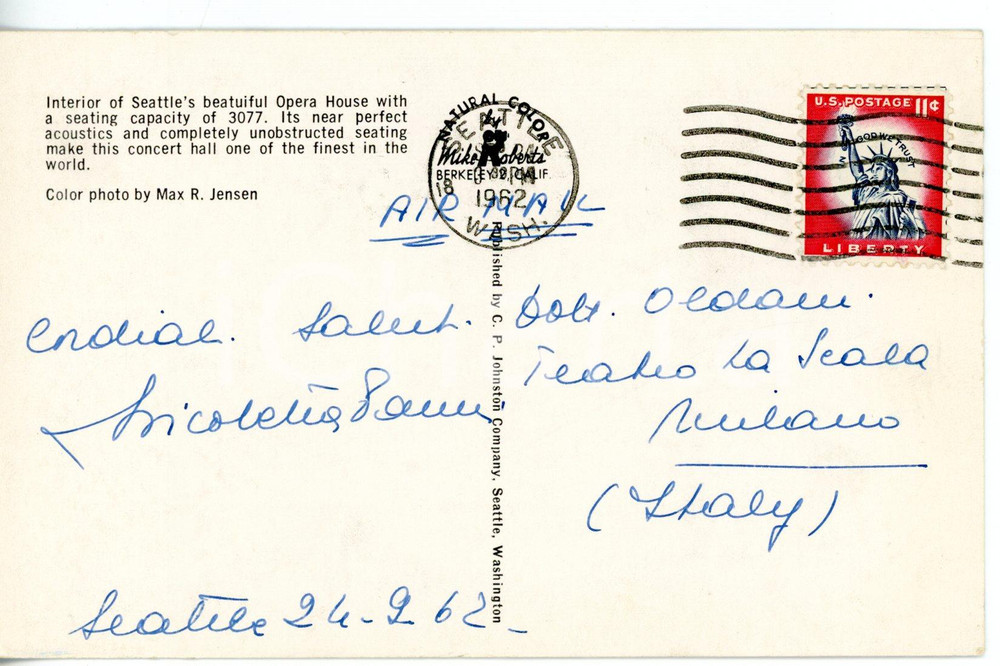 Interior of Seattle's beatuiful Opera House with
a seating capacity of 3077. Its near perfect
acoustics and completely unobstructed seating
make this concert hall one of the finest in the
world.
Color photo by Max R. Jensen
NATURAL COLOR
by
Mike Roberts
BERKELEY 2, CALIF.
SEATTLE
1962
WASH.
U.S. POSTAGE 11¢
IN GOD WE TRUST
LIBERTY
AIR MAIL
Published by C. P. Johnston Company, Seattle, Washington
Cordial. Salut.
Nicoletta Panni
Dott. Oldani.
Teatro La Scala
Milano
(Italy)
Seattle 24-9-62-